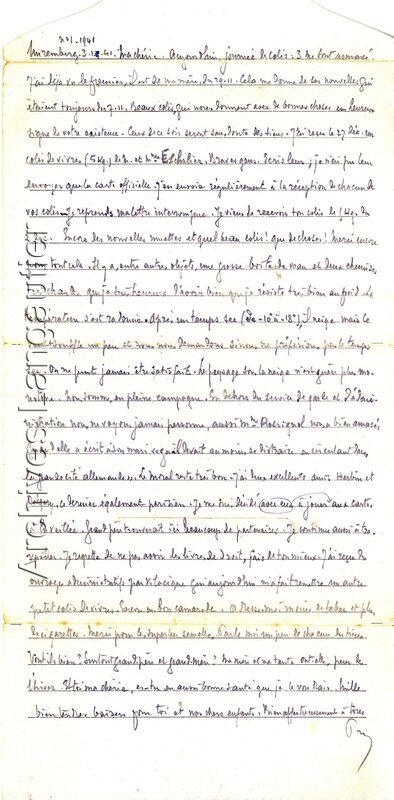 n°1. 1941
Nuremberg. 3. 1. 41. Ma chérie. Aujourd'hui, journée de colis : 3 me sont annoncés
J'ai déjà vu le premier, il est de ma mère, du 29.11. Cela me donne de ses nouvelles qui
étaient toujours du 7.11. Beaux colis qui nous donnent avec de bonnes choses un heureux
signe de votre existence. Ceux de ce soir seront sans doute des tiens. J'ai reçu le 27 déc. un
colis de vivres, (5 kg.) de M. et Mme Echalier. Braves gens. Ecris leur, je n'ai pu leur
envoyer que la carte officielle. J'en envoie régulièrement à la réception de chacun de
vos colis. Je reprends ma lettre interrompue. Je viens de recevoir ton colis de 5 kg. du
Encore les nouvelles muettes et quel beau colis ! que de choses ! Merci encore
tout cela. Il y a, entre autres objets, une grosse boîte de veau et deux chemises
chaudes que je suis heureux d'avoir bien que je résiste très bien au froid. La
température s'est radoucie. Après un temps sec (de -10 à -18°), il neige mais le
souffle un peu et nous nous demandons si nous ne préférions pas le temps
On ne peut jamais être satisfait. Le paysage sous la neige n'est guère plus mo-
notone. Nous sommes en pleine campagne. En dehors du service de garde et d'admi-
nistration nous ne voyons jamais personne, aussi Mme Rossignol nous a bien amusés
quand elle a écrit à son mari ce qu'il devait au moins se distraire en circulant dans
la grande cité allemande. Le moral reste très bon. J'ai deux excellents amis Herbin et
ce dernier également parisien. Je me suis décidé (avec eux) à jouer aux cartes
à la veillée. Grand père trouverait ici beaucoup de partenaires. Je continue aussi à tra-
vailler. Je regrette de ne pas avoir les livres de droit, fais de ton mieux. J'ai reçu des
ouvrages administratifs par qui aujourd'hui m'a fait remettre un autre
petit colis de vivres. Encore un bon camarade. Adresse moi moins de tabac et plus
de cigarettes. Merci pour les superbes semelles. Parle moi un peu de chacun des tiens.
Vont-ils bien ? Surtout grand père et grand mère ? Ma mère et ma tante ont-elles passé
l'hiver. Et toi ma chérie, es-tu en aussi bonne santé que je le voudrais. Mille
bien tendres baisers pour toi et nos chers enfants. Bien affectueusement à tous